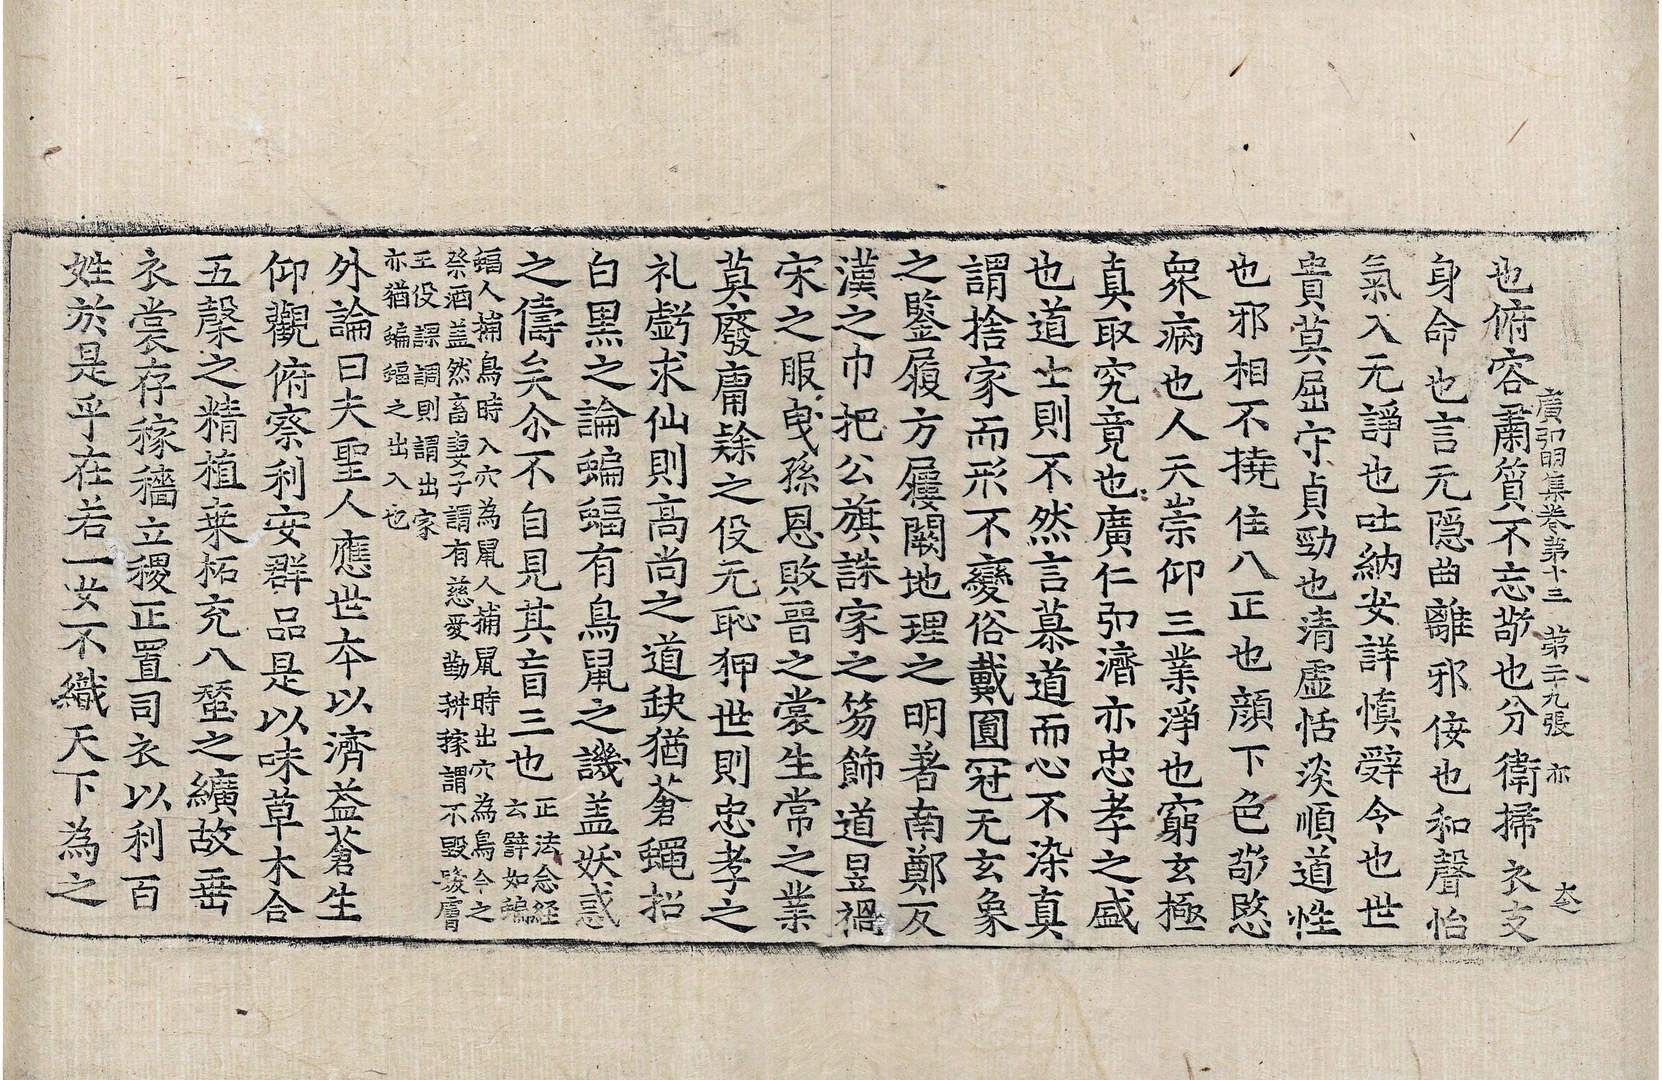 廣弘明集卷第十三 第二十九張 亦
也俯容肅質不忘敬也分衛掃衣支
身命也言无隱曲離邪侫也和聲怡
氣入无諍也吐納安詳慎辭令也世
貴莫屈守貞勁也清虛恬淡順道性
也邪相不撓住八正也顔下色敬愍
衆病也人天崇仰三業淨也窮玄極
真取究竟也廣仁弘濟亦忠孝之盛
也道士則不然言慕道而心不染真
謂捨家而形不變俗戴圎冠无玄象
之鑒履方屨闕地理之明著南鄭反
漢之巾把公旗誅家之笏飾道昱禍
宋之服曳孫恩敗晉之裳生常之業
莫廢庸緣之伇无恥狎世則忠孝之
礼虧求仙則高尚之道缺猶蒼蠅招
白黑之論蝙蝠有鳥鼠之譏盖妖惑
之儔矣尒不自見其盲三也 正法念経
云譬如蝙
蝠人捕鳥時入穴為鼠人捕鼠時出穴為鳥今之
祭酒盖然畜妻子謂有慈愛勤耕稼謂不毁髮膚
王伇課調則謂出家
亦猶蝙蝠之出入也
外論曰夫聖人應世本以濟益蒼生
仰觀俯察利安群品是以味草木合
五聲之精植桒柘充八蠶之纊故垂
衣裳存稼穡立稷正置司衣以利百
姓於是乎在若一女不織天下為之